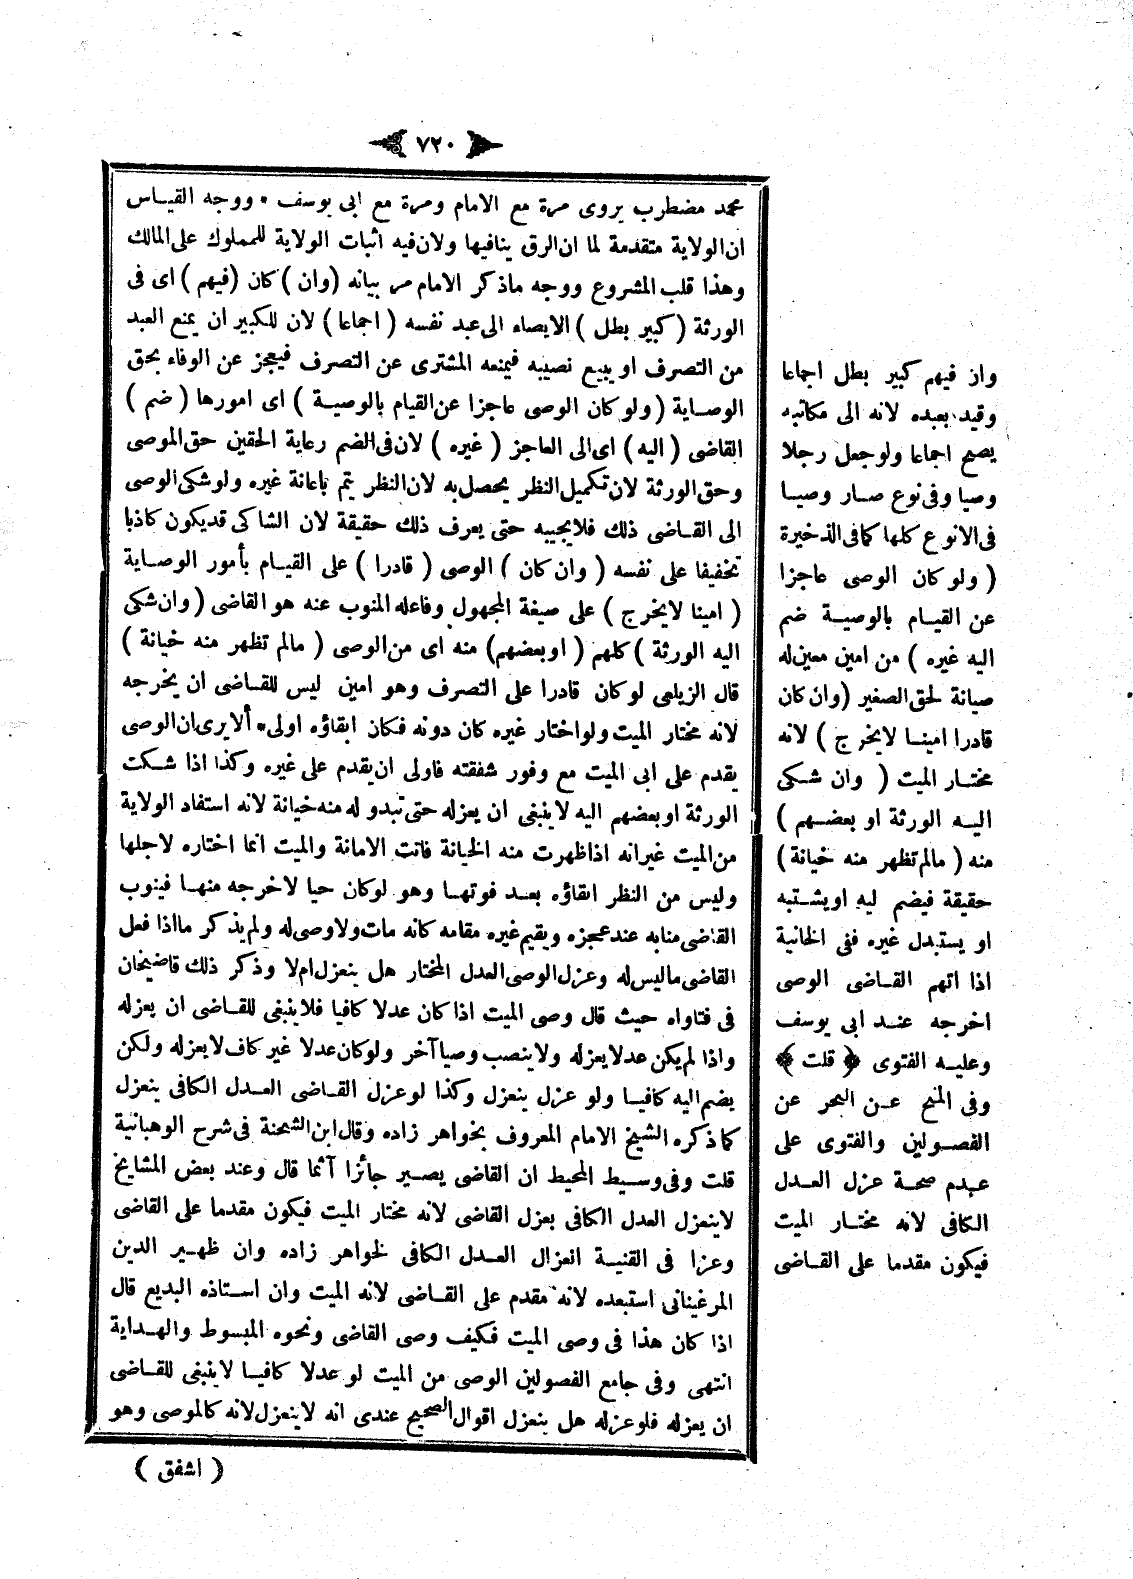 ٧٢٠
محمد مضطرب يروى مرة مع الامام ومرة مع ابى يوسف * ووجه القياس
ان الولاية متقدمة لما ان الرق ينافيها ولان فيه اثبات الولاية للمملوك على المالك
وهذا قلب المشروع ووجه ماذكر الامام مر بيانه (وان) كان (فيهم) اى فى
الورثة (كبير بطل) الايصاء الى عبد نفسه (اجماعا) لان للكبير ان يمنع العبد
من التصرف او يبيع نصيبه فيمنعه المشترى عن التصرف فيعجز عن الوفاء بحق
الوصاية (ولو كان الوصى عاجزا عن القيام بالوصية) اى امورها (ضم)
القاضى (اليه) اى الى العاجز (غيره) لان فى الضم رعاية الحقين حق الموصى
وحق الورثة لان تكميل النظر يحصل به لان النظر يتم باعانة غيره ولو شكى الوصى
الى القاضى ذلك فلا يجيبه حتى يعرف ذلك حقيقة لان الشاكى قد يكون كاذبا
تخفيفا على نفسه (وان كان) الوصى (قادرا) على القيام بأمور الوصاية
(امينا لا يخرج) على صيغة المجهول وفاعله المنوب عنه هو القاضى (وان شكى
اليه الورثة) كلهم (او بعضهم) منه اى من الوصى (مالم تظهر منه خيانة)
قال الزيلعى لو كان قادرا على التصرف وهو امين ليس للقاضى ان يخرجه
لانه مختار الميت ولو اختار غيره كان دونه فكان ابقاؤه اولى * ألا يرى ان الوصى
يقدم على ابى الميت مع وفور شفقته فاولى ان يقدم على غيره وكذا اذا شكت
الورثة او بعضهم اليه لا ينبغى ان يعزله حتى تبدو له منه خيانة لانه استفاد الولاية
من الميت غير انه اذا ظهرت منه الخيانة فاتت الامانة والميت انما اختاره لاجلها
وليس من النظر ابقاؤه بعد فوتها وهو لو كان حيا لاخرجه منها فينوب
القاضى منابه عند عجزه ويقيم غيره مقامه كانه مات ولا وصى له ولم يذكر ما اذا فعل
القاضى ما ليس له وعزل الوصى العدل المختار هل ينعزل ام لا وذكر ذلك قاضيخان
فى فتاواه حيث قال وصى الميت اذا كان عدلا كافيا فلا ينبغى للقاضى ان يعزله
واذا لم يكن عدلا يعزله ولا ينصب وصيا آخر ولو كان عدلا غير كاف لا يعزله ولكن
يضم اليه كافيا ولو عزل ينعزل وكذا لو عزل القاضى العدل الكافى ينعزل
كما ذكره الشيخ الامام المعروف بخواهر زاده وقال ابن الشحنة فى شرح الوهبانية
قلت وفى وسيط المحيط ان القاضى يصير جائزا آثما قال وعند بعض المشايخ
لا ينعزل العدل الكافى بعزل القاضى لانه مختار الميت فيكون مقدما على القاضى
وعزا فى القنية انعزال العدل الكافى لخواهر زاده وان ظهير الدين
المرغينانى استبعده لانه مقدم على القاضى لانه الميت وان استاذه البديع قال
اذا كان هذا فى وصى الميت فكيف وصى القاضى ونحوه المبسوط والهداية
انتهى وفى جامع الفصولين الوصى من الميت لو عدلا كافيا لا ينبغى للقاضى
ان يعزله فلو عزله هل ينعزل اقوال الصحيح عندى انه لا ينعزل لانه كالموصى وهو
(اشفق)
وان فيهم كبير بطل اجماعا
وقيد بعبده لانه الى مكاتبه
يصح اجماعا ولو جعل رجلا
وصيا وفى نوع صار وصيا
فى الانوع كلها كما فى الذخيرة
(ولو كان الوصى عاجزا
عن القيام بالوصية ضم
اليه غيره) من امين معين له
صيانة لحق الصغير (وان كان
قادرا امينا لا يخرج) لانه
مختار الميت (وان شكى
اليه الورثة او بعضهم)
منه (مالم تظهر منه خيانة)
حقيقة فيضم ليه او يشتبه
او يستبدل غيره ففى الخانية
اذا اتهم القاضى الوصى
اخرجه عند ابى يوسف
وعليه الفتوى ﴿قلت﴾
وفى المنح عن البحر عن
الفصولين والفتوى على
عدم صحة عزل العدل
الكافى لانه مختار الميت
فيكون مقدما على القاضى